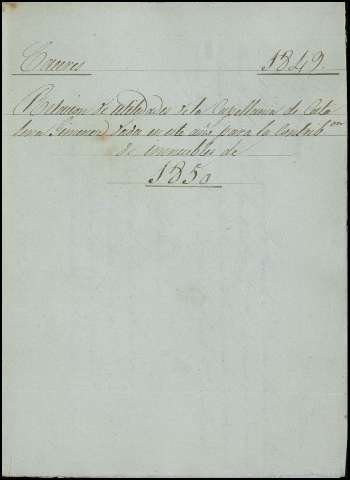 Caceres 1849.
Relacion de utilidades de la Capellania de Cata
lina Jimenez dada en este año para la Contrib.on
de inmuebles de
1850